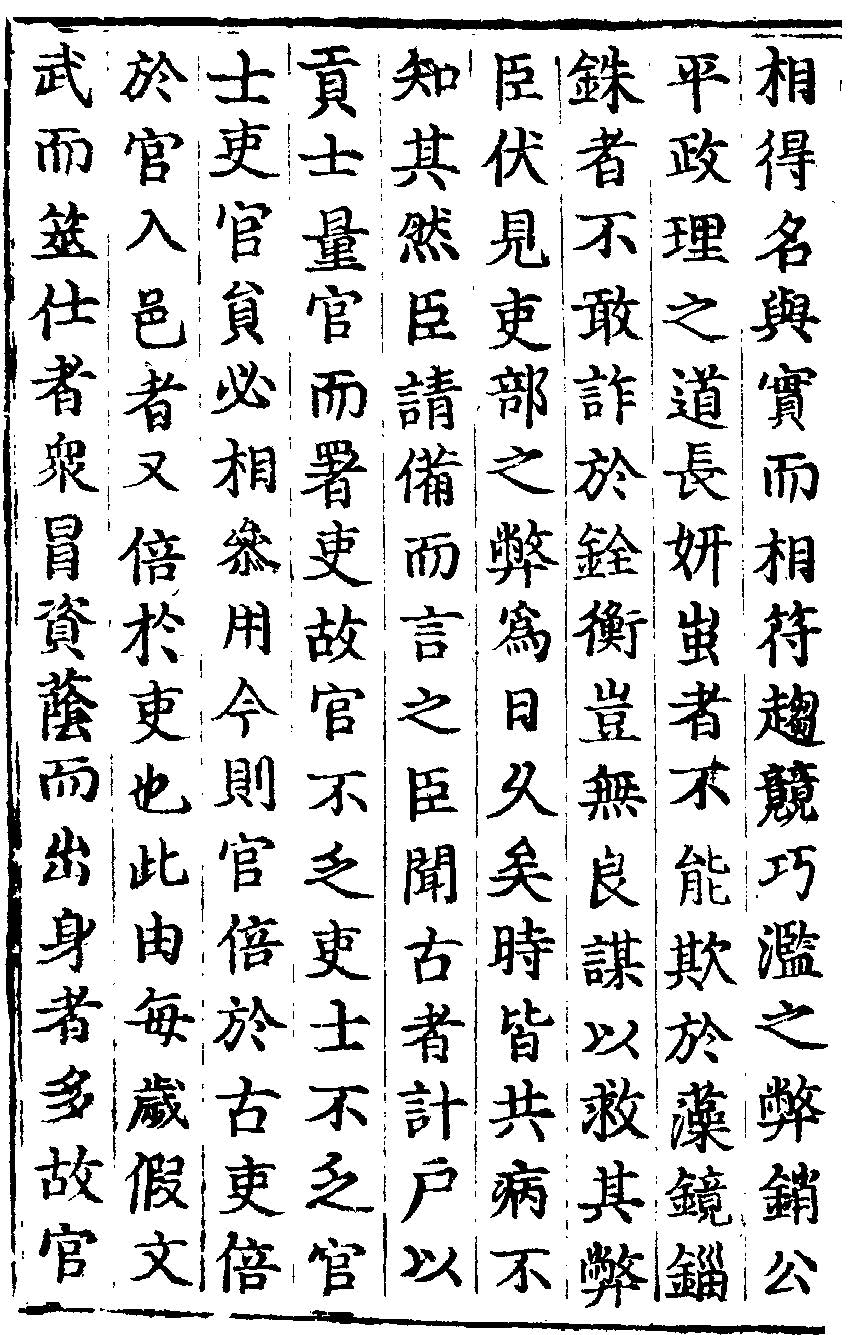 相得名與實而相符趨競巧濫之弊銷公
平政理之道長妍蚩者不能欺於藻鏡錙
銖者不敢詐於銓衡豈無良謀以救其弊
臣伏見吏部之弊爲日久矣時皆共病不
知其然臣請備而言之臣聞古者計戶以
貢士量官而署吏故官不乏吏士不乏官
士吏官貟必相叅用今則官倍於古吏倍
於官入邑者又倍於吏也此由每歲假文
武而筮仕者衆冒資蔭而出身者多故官